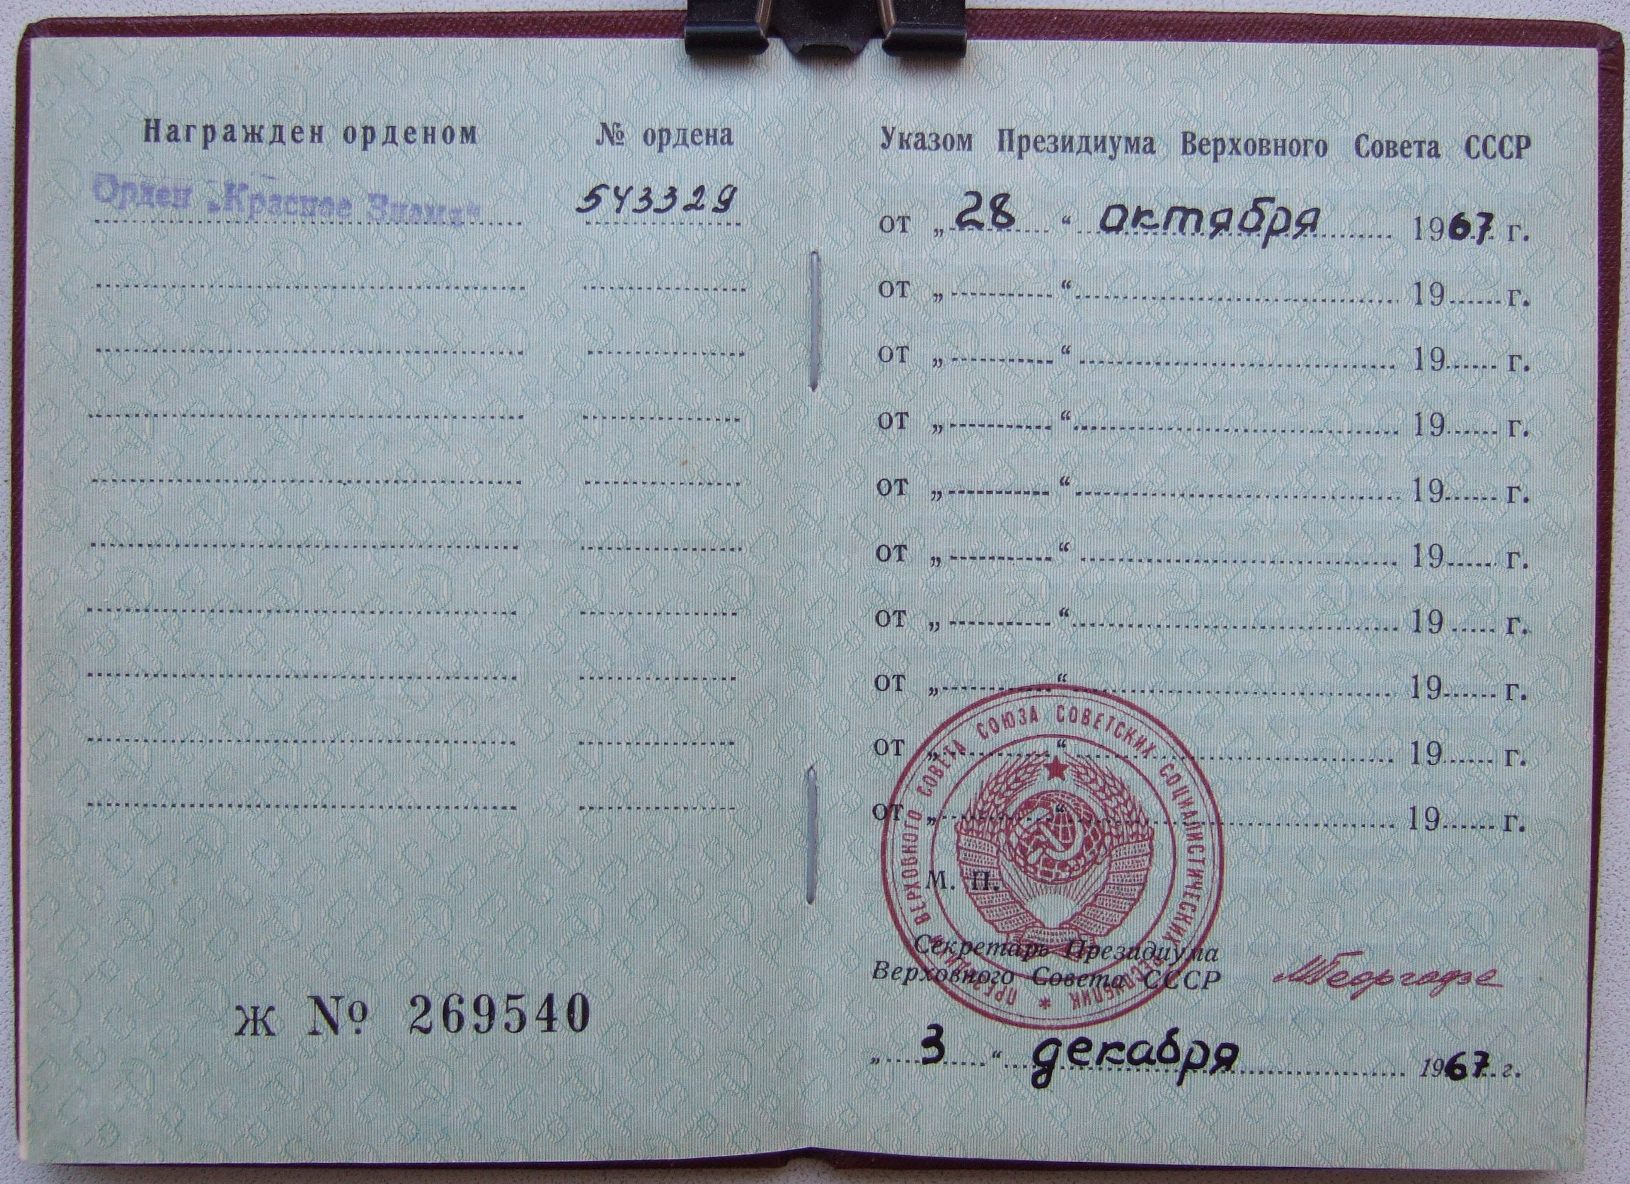 Награжден орденом
№ ордена
Орден „Красное Знамя“
543329
Ж № 269540
Указом Президиума Верховного Совета СССР
от „28“ октября 1967 г.
от „ “ 19 г.
от „ “ 19 г.
от „ “ 19 г.
от „ “ 19 г.
от „ “ 19 г.
от „ “ 19 г.
от „ “ 19 г.
от „ “ 19 г.
от „ “ 19 г.
М. П.
ПРЕЗИДИУМ ВЕРХОВНОГО СОВЕТА СОЮЗА СОВЕТСКИХ СОЦИАЛИСТИЧЕСКИХ РЕСПУБЛИК *
Секретарь Президиума
Верховного Совета СССР
МГеоргадзе
„3“ декабря 1967 г.